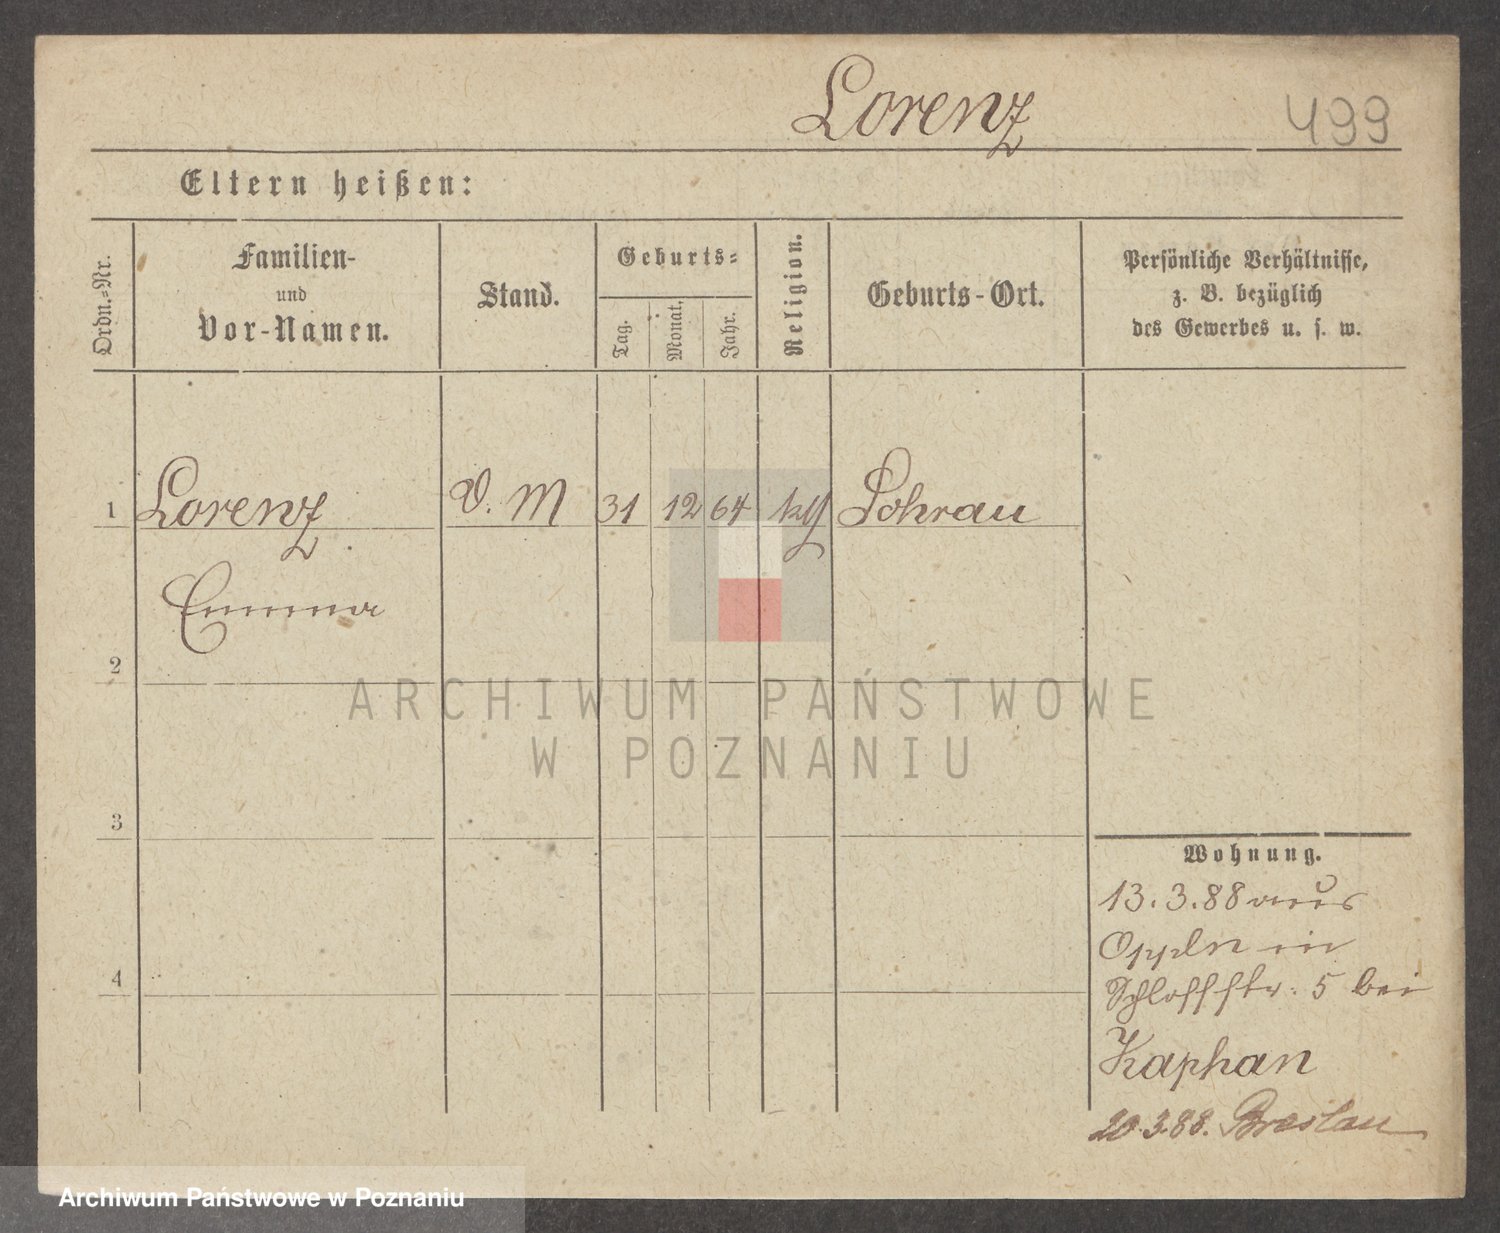 Lorenz 499
Eltern heißen:
Ordn.-Nr.
Familien-
und
Vor-Namen.
Stand.
Geburts-
Tag.
Monat.
Jahr.
Religion.
Geburts-Ort.
Persönliche Verhältnisse,
z. B. bezüglich
des Gewerbes u. s. w.
1 Lorenz D. M 31 12 64 kg Sohrau
Emma
2
3
4
Wohnung.
13.3.88 aus
Oppeln in
Schloßstr. 5 bei
Kaphan
20.3.88. Breslau
ARCHIWUM PAŃSTWOWE
W POZNANIU
Archiwum Państwowe w Poznaniu